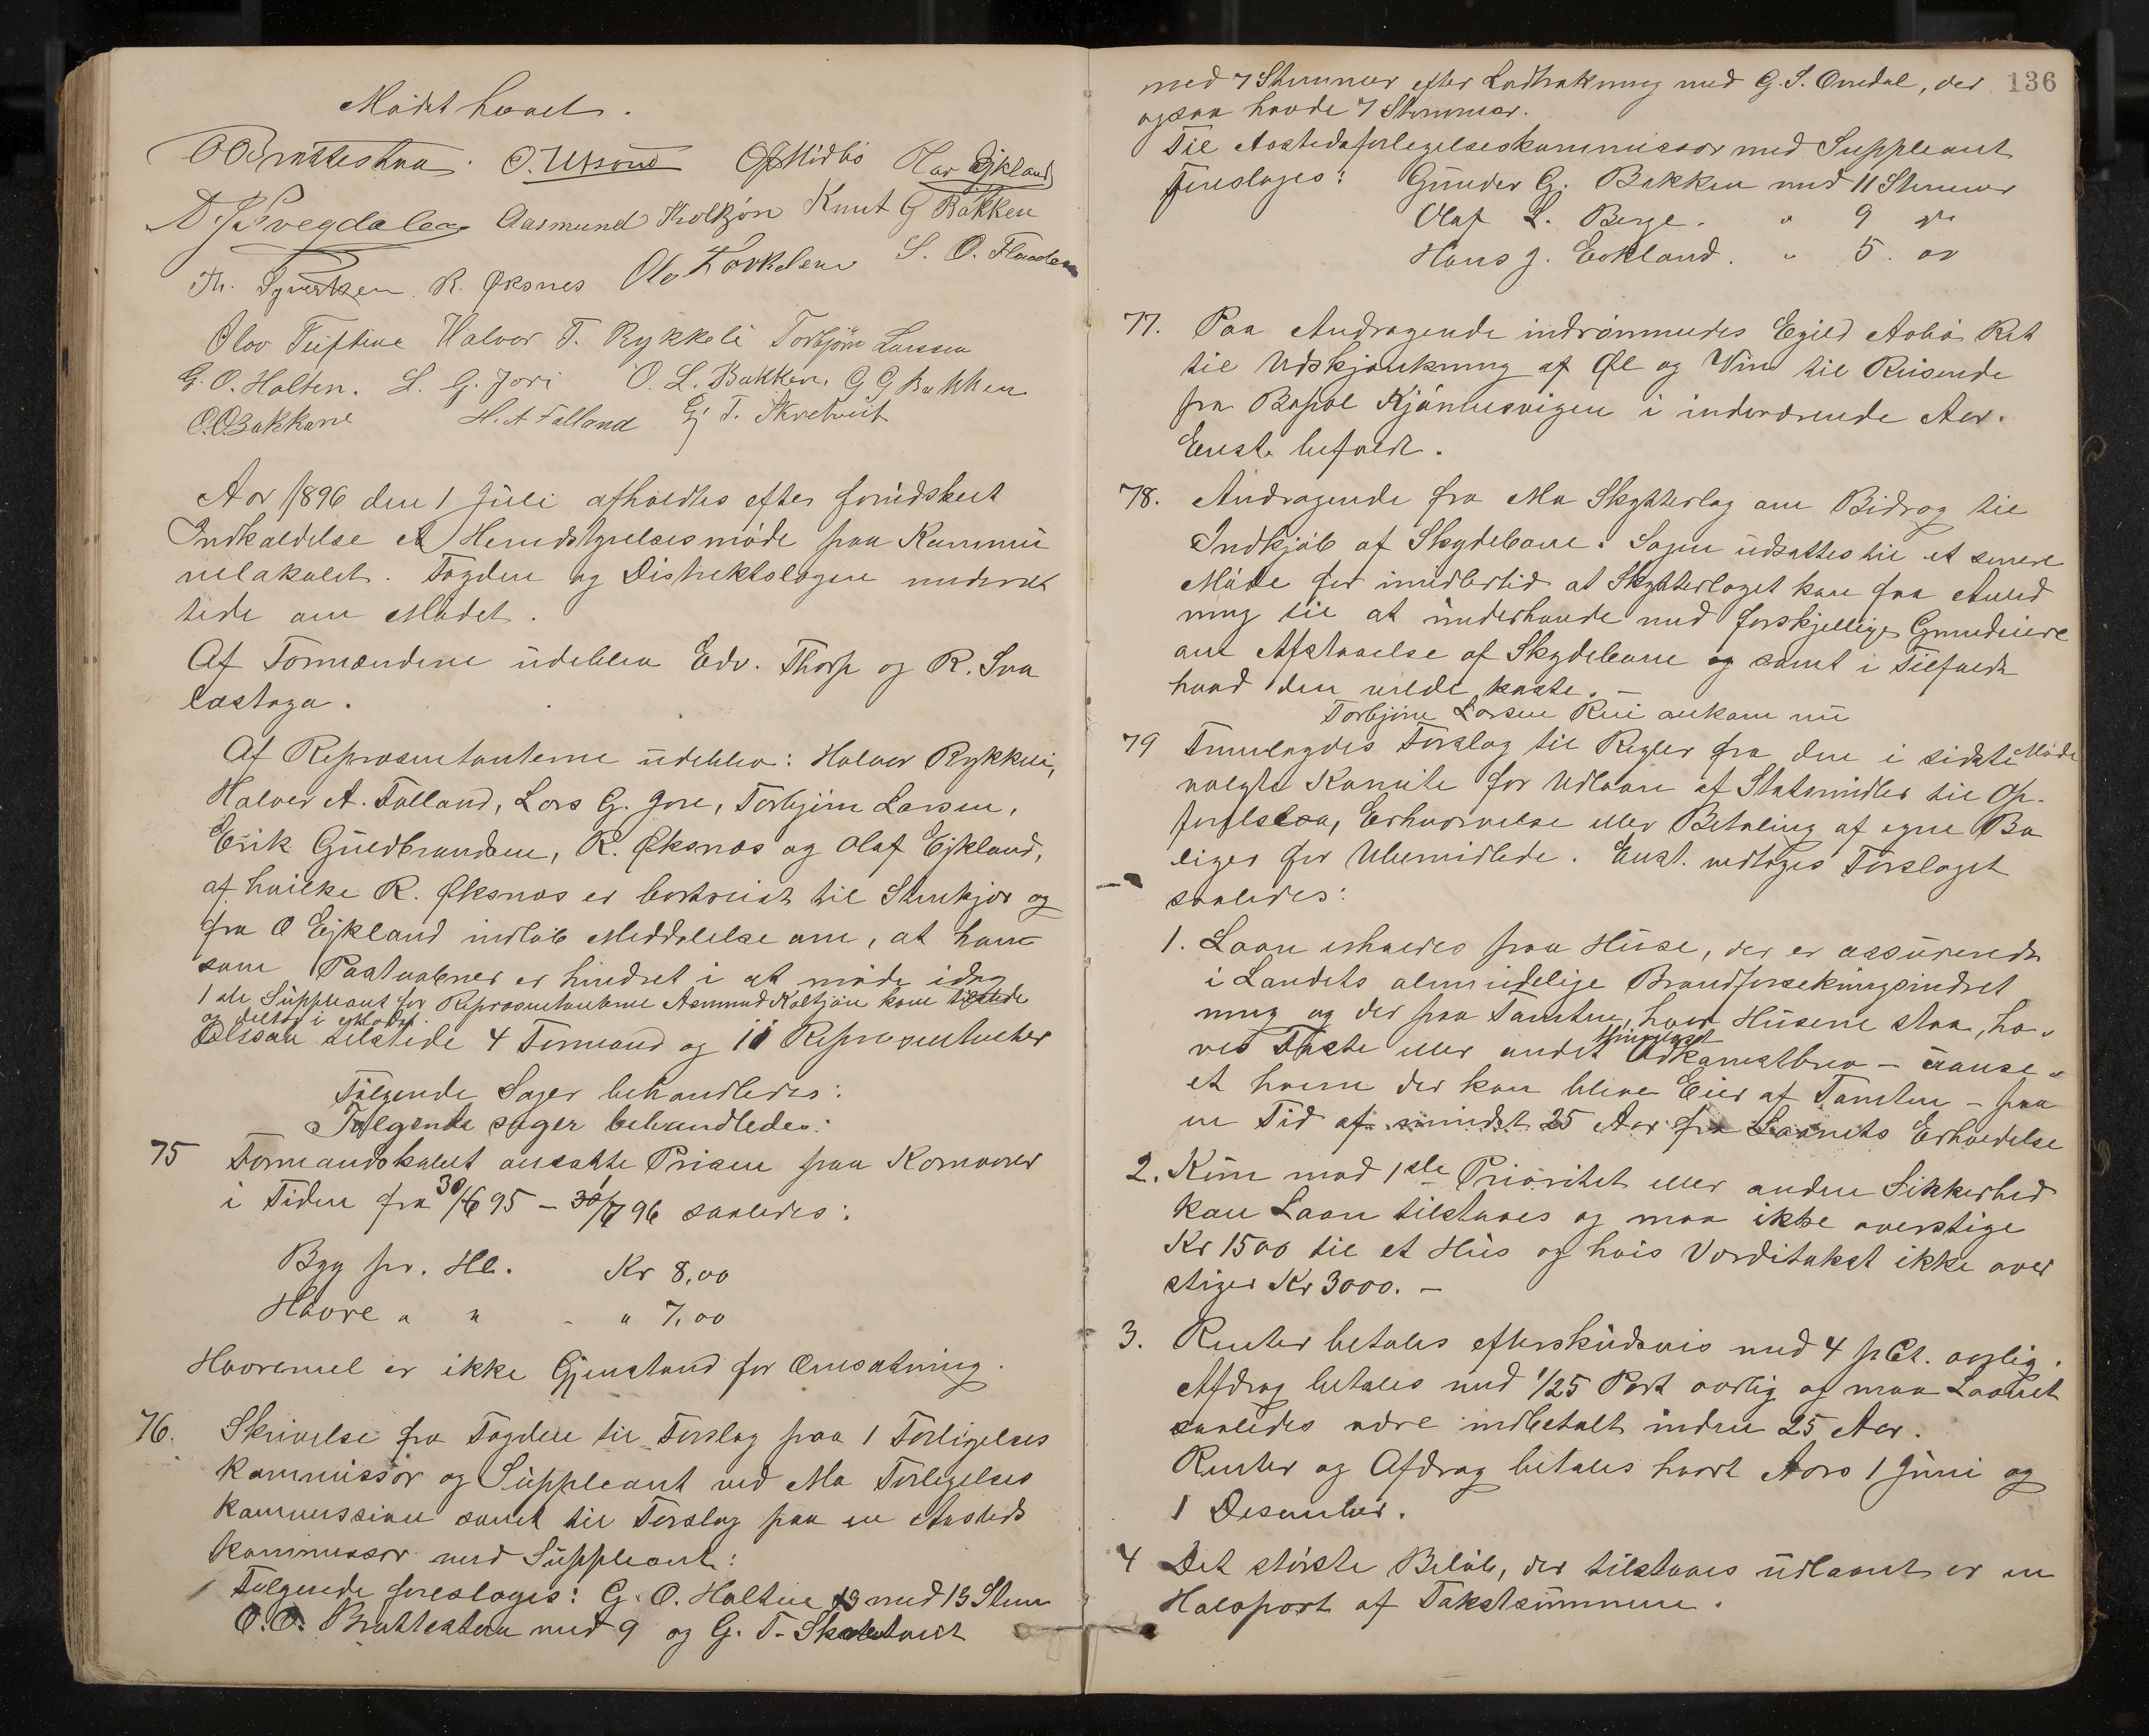 Mødet hævet.
O O Brattestaa. O. Ulsund O J Midbø Olav Ejkland
D. J. Svegdalen Aasmund Koltjøn Knut G Bakken
Th. Syvertsen R. Øksnes Ole Torkelsen S. O. Flaaden
Olav Tuftene Halvor T. Rykkeli Torbjørn Larssen
G. O. Holten. L. G. Jori O. L. Bakken. G G Bakken
O.O.Bakkane H. A Folland G. T. Skretveit
Aar 1896 den 1 Juli afholdtes efter forudskeet
Indkaldelse et Herredstyrelsesmøde paa Kommu
nelokalet. Fogden og Distriktslægen underret
tede om Mødet.
Af Formændene udeblev Edv. Thorp og R. Sva
lastoga.
Af Repræsentanterne udeblev: Halvor Rykkeli,
Halvor A. Folland, Lars G. Jore, Torbjørn Larsen,
Erik Guldbrandsen, R. Øksnæs og Olaf Ejkland,
af hvilke R. Øksnæs er bortreist til Stenkjær og
fra O Ejkland indløb Meddelelse om, at han
som Postaabner er hindret i at møde idag
1ste Suppleant for Repræsentanterne Asmund Koltjøn kom tilstede
og deltog i Mødet.
Altsaa tilstede 4 Formænd og 11 Repræsentanter
Følgende Sager behandledes:
Følgende sager behandledes:
75 Formandskabet ansatte Prisen paa Kornvarer
i Tiden fra 30/6 95 – 1/7 96 saaledes:
Byg pr. Hl. Kr 8,00
Havre " " " 7,00
Havremel er ikke Gjenstand for Omsætning.
76. Skrivelse fra Fogden til Forslag paa 1 Forligelses
kommissær og Suppleant ved Mo Forligelses
kommission samt til Forslag paa en Aasteds
kommissær med Suppleant:
Følgende foresloges: G. O. Holten med 13 Stem
O. O. Brattestaa med 9 og G. T. Skretveit
136
med 7 Stemmer efter Lodtrækning med G. S. Omdal, der
ogsaa havde 7 Stemmer.
Til Aastedsforligelseskommissær med Suppleant
foresloges: Gunder G. Bakken med 11 Stemmer
Olaf L. Berge. " 9 do
Hans J. Eekland. " 5. do
77. Paa Andragende indrømmedes Egild Aabø Ret
til Udskjænkning af Øl og Vin til Reisende
fra Kjønnesvigen i indeværende Aar.
Enst. besluttet.
78. Andragende fra Mo Skytterlag om Bidrag til
Indkjøb af Skydebane. Sagen udsattes til et senere
Møde for imidlertid at Skytterlaget kan faa Anled
ning til at underhandle med forskjellige Grundeiere
om Afstaaelse af Skydebane og samt i Tilfælde
hvad den vilde koste. –
Torbjørn Larsen Rui ankom nu
79 Fremlagdes Forslag til Regler fra den i sidste Møde
valgte Komite for Udlaan af Statsmidler til Op-
førelse, Erhvervelse eller Betaling af egne Bo
liger for Ubemidlede. Enst. vedtoges Forslaget
saaledes:
1. Laan erholdes paa Huse, der er assurerede
i Landets almindelige Brandforsikringsindret
ning og der paa Tomten, hvor Husene staa, ha-
ves Fæste eller andet thinglæst Adkomstbrev – uanse-
et hvem der kan blive Eier af Tomten – paa
en Tid af mindst 25 Aar fra Laanets Erholdelse
2. Kun mod 1ste Prioritet eller anden Sikkerhed
kan Laan tilstaaes og maa ikke overstige
Kr 1500 til et Hus og hvis Værditakst ikke over
stiger Kr 3000. –
3. Renter betales efterskudsvis med 4 p Ct. aarlig.
Afdrag betales med 1/25 Part aarlig og maa Laanet
saaledes være indbetalt inden 25 Aar.
Renter og Afdrag betales hvert Aars 1 Juni og
1 Desember.
4 Det største Beløb, der tilstaaes udlaant er en
Halvpart af Takstsummen.